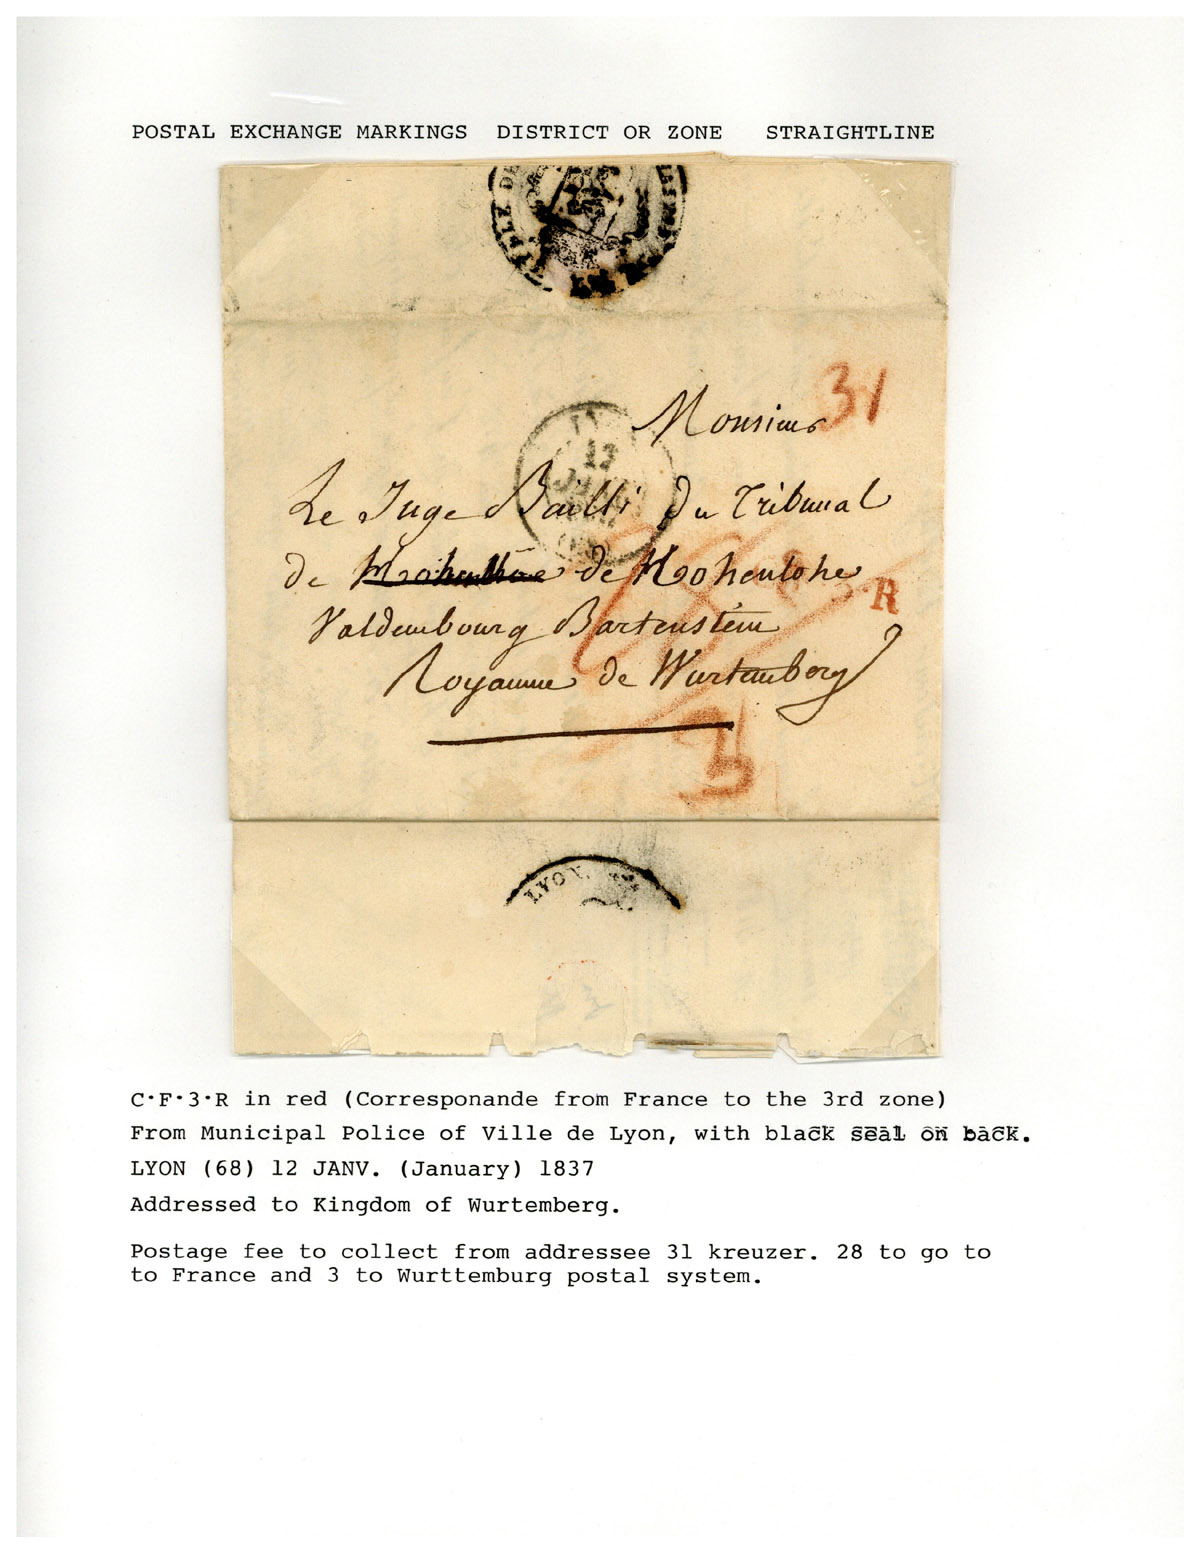 POSTAL EXCHANGE MARKINGS DISTRICT OR ZONE STRAIGHTLINE
31
Monsieur
Le Juge Bailli du Tribunal
de de Hohenlohe
R
Valdenbourg Bartenstein
Royaume de Wurtemberg
3
LYON
C·F·3·R in red (Corresponande from France to the 3rd zone)
From Municipal Police of Ville de Lyon, with black seal on back.
LYON (68) 12 JANV. (January) 1837
Addressed to Kingdom of Wurtemberg.
Postage fee to collect from addressee 31 kreuzer. 28 to go to
to France and 3 to Wurttemburg postal system.